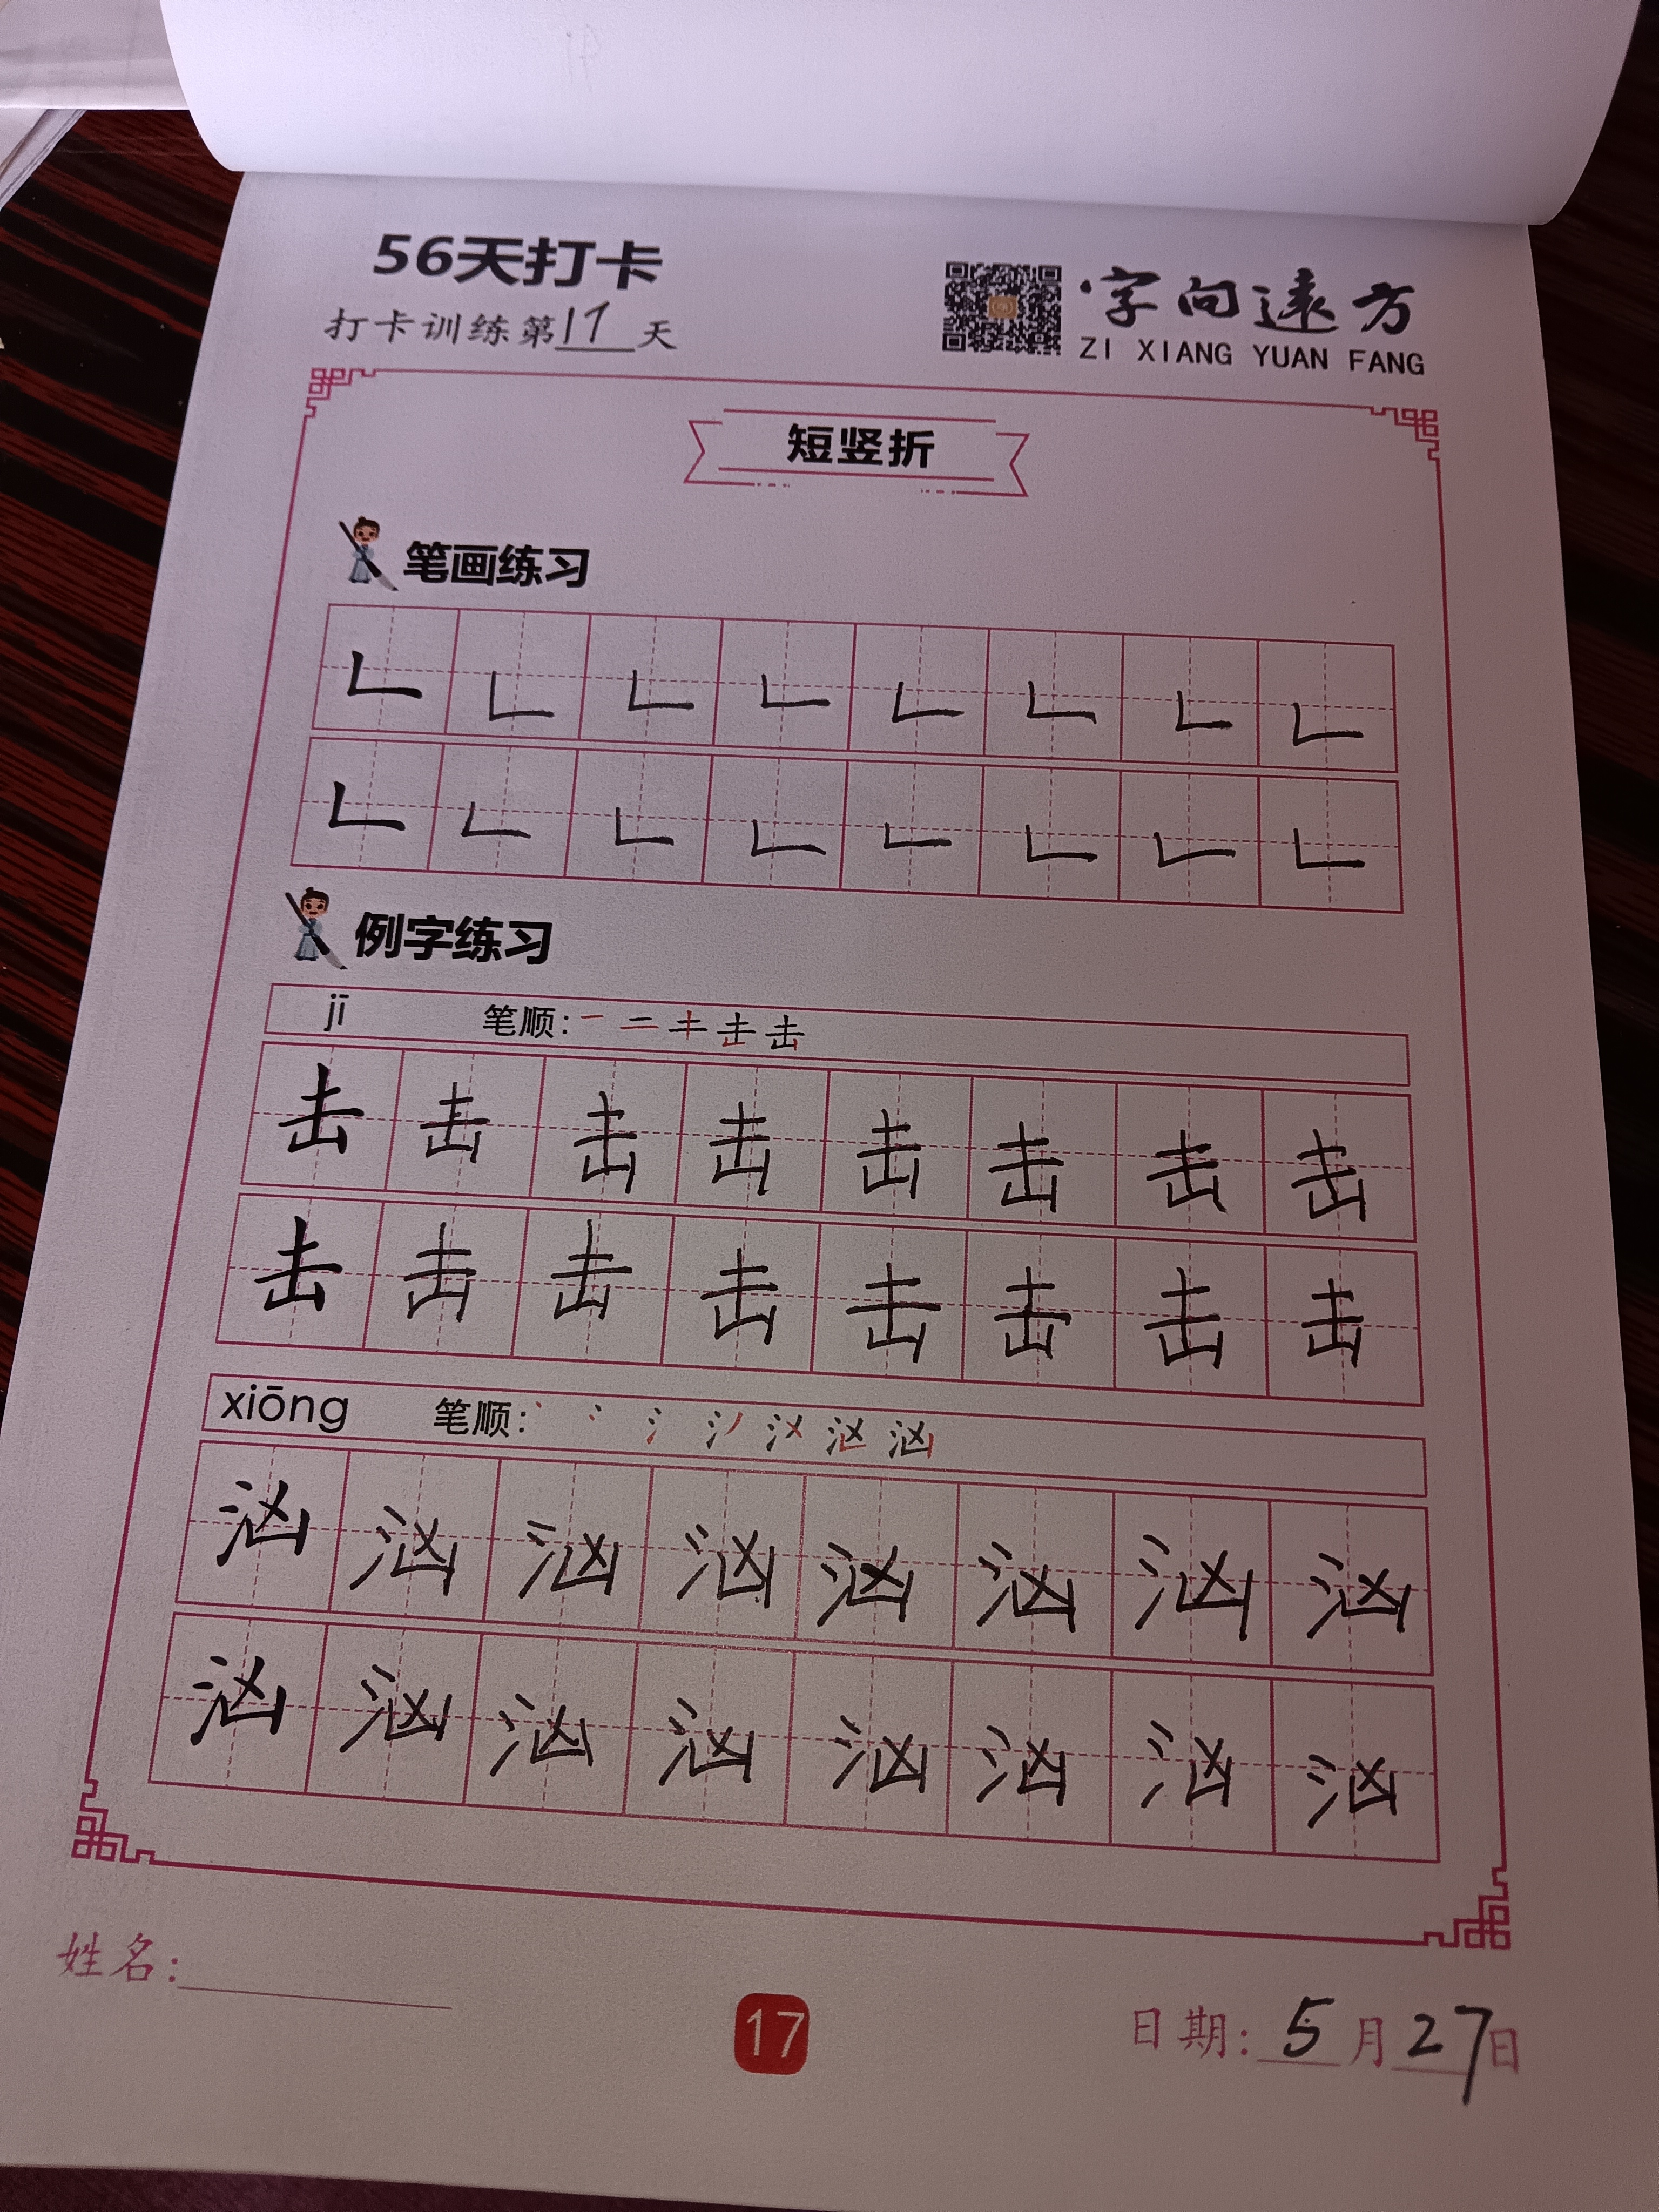 56天打卡
打卡训练第17天
字向远方
ZI XIANG YUAN FANG
短竖折
笔画练习
𠃊 𠃊 𠃊 𠃊 𠃊 𠃊 𠃊 𠃊
𠃊 𠃊 𠃊 𠃊 𠃊 𠃊 𠃊 𠃊
例字练习
jī 笔顺: 一 二 キ 击 击
击 击 击 击 击 击 击 击
击 击 击 击 击 击 击 击
xiōng 笔顺: 丶 冫 氵 汹 汹
汹 汹 汹 汹 汹 汹 汹 汹
汹 汹 汹 汹 汹 汹 汹 汹
姓名:
17
日期: 5月27日